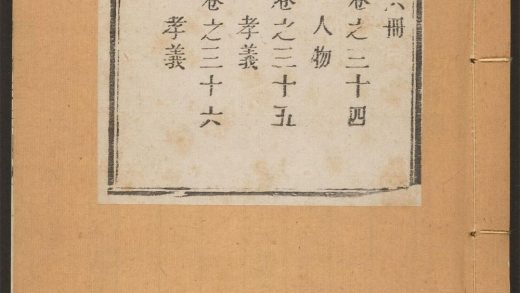 六冊
卷之三十四
人物
卷之三十五
孝義
卷之三十六
孝義